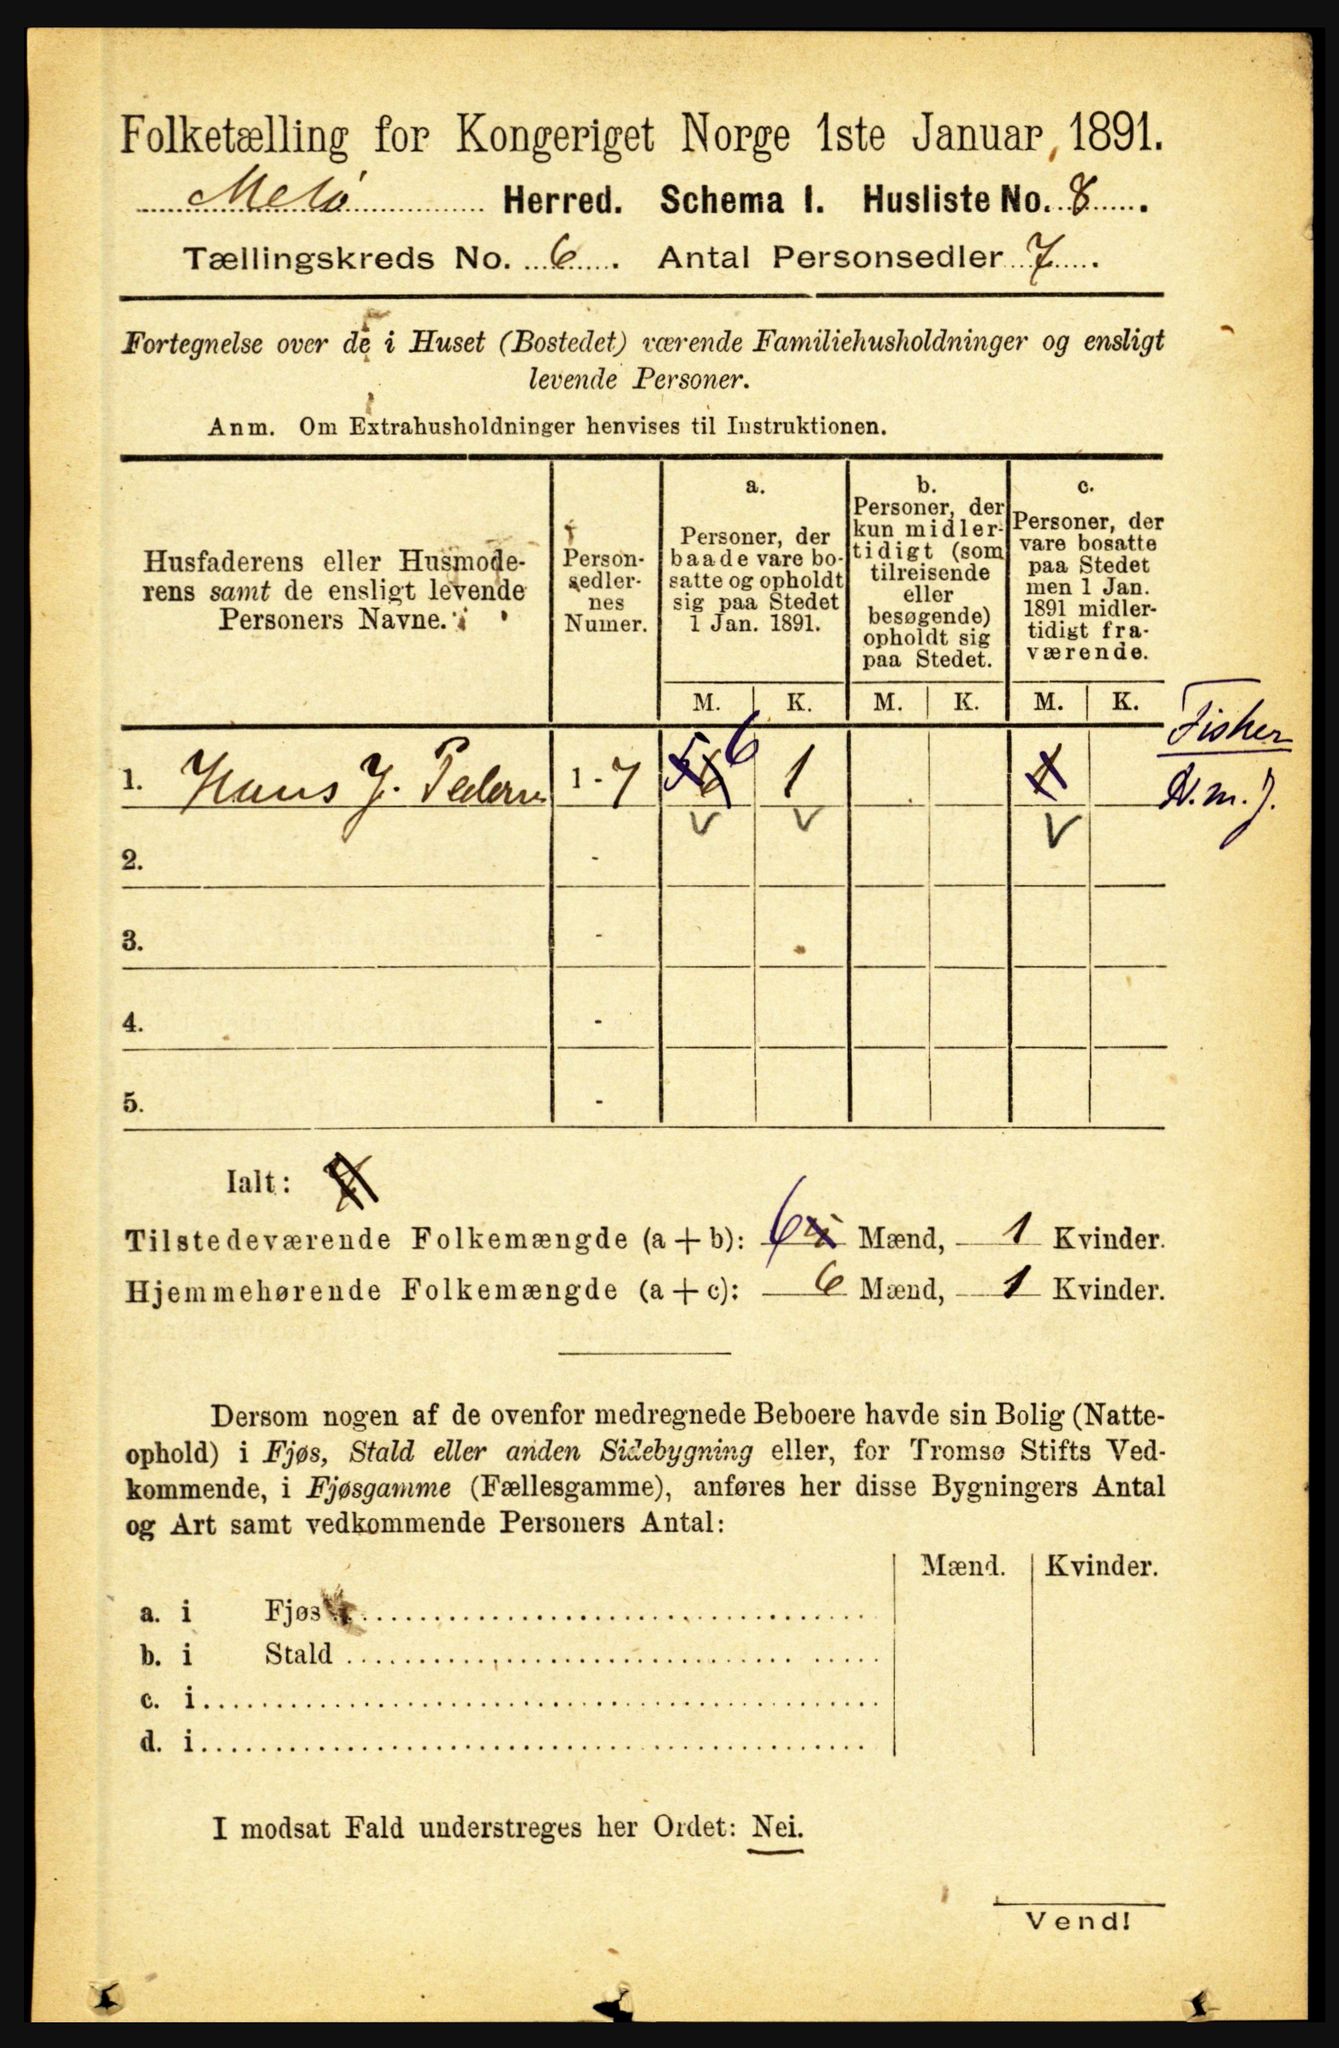 Folketælling for Kongeriget Norge 1ste Januar 1891.
Melö Herred. Schema I. Husliste No. 8.
Tællingskreds No. 6. Antal Personsedler 7.
Fortegnelse over de i Huset (Bostedet) værende Familiehusholdninger og ensligt
levende Personer.
Anm. Om Extrahusholdninger henvises til Instruktionen.
Husfaderens eller Husmode-
rens samt de ensligt levende
Personers Navne.
Person-
sedler-
nes
Numer.
a.
Personer, der
baade vare bo-
satte og opholdt
sig paa Stedet
1 Jan. 1891.
b.
Personer, der
kun midler-
tidigt (som
tilreisende
eller
besøgende)
opholdt sig
paa Stedet.
c.
Personer, der
vare bosatte
paa Stedet
men 1 Jan.
1891 midler-
tidigt fra-
værende.
M. K. M. K. M. K.
Fisker
1. Hans J. Pedersen 1-7 5 6 1 1 N. m. J.
2. -
3. -
4. -
5. -
Ialt:
Tilstedeværende Folkemængde (a + b): 6 Mænd, 1 Kvinder.
Hjemmehørende Folkemængde (a + c): 6 Mænd, 1 Kvinder.
Dersom nogen af de ovenfor medregnede Beboere havde sin Bolig (Natte-
ophold) i Fjøs, Stald eller anden Sidebygning eller, for Tromsø Stifts Ved-
kommende, i Fjøsgamme (Fællesgamme), anføres her disse Bygningers Antal
og Art samt vedkommende Personers Antal:
Mænd. Kvinder.
a. i Fjøs
b. i Stald
c. i
d. i
I modsat Fald understreges her Ordet: Nei.
Vend!